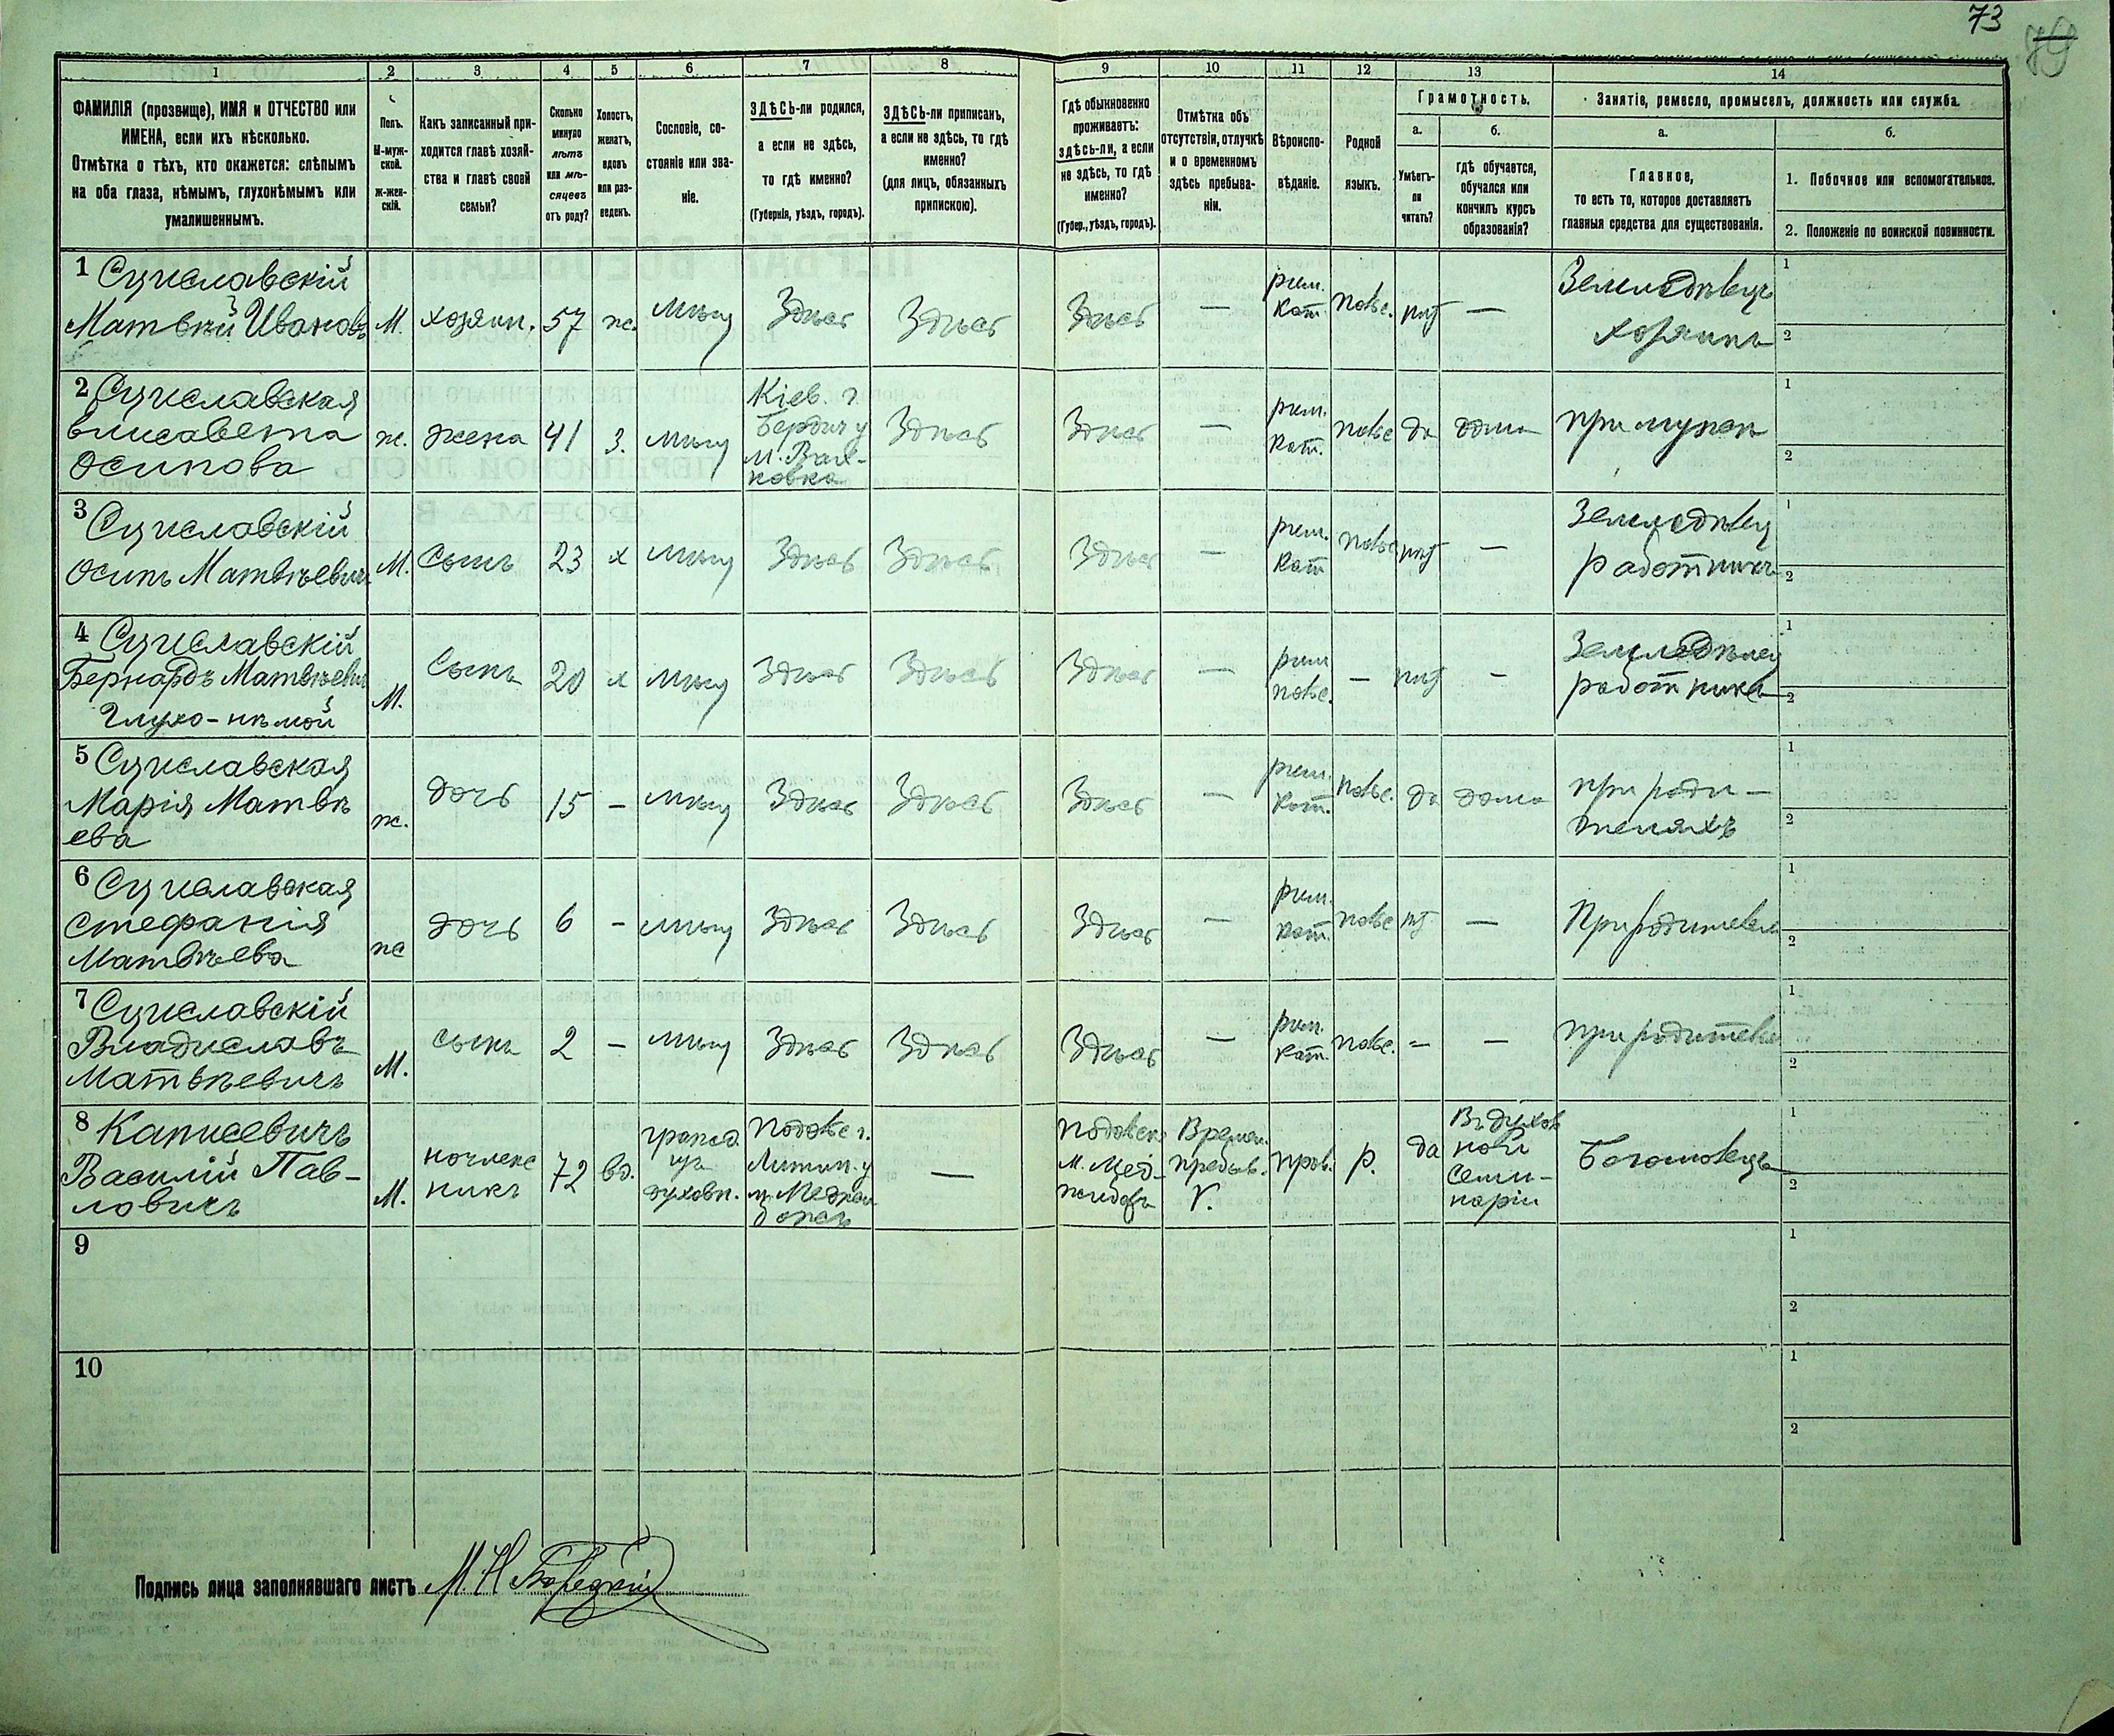 73
79
1 2 3 4 5 6 7 8 9 10 11 12 13 14
ФАМИЛІЯ (прозвище), ИМЯ и ОТЧЕСТВО или
ИМЕНА, если ихъ нѣсколько.
Отмѣтка о тѣхъ, кто окажется: слѣпымъ
на оба глаза, нѣмымъ, глухонѣмымъ или
умалишеннымъ.
Полъ.
М-муж-
ской.
Ж-жен-
скій.
Какъ записанный при-
ходится главѣ хозяй-
ства и главѣ своей
семьи?
Сколько
минуло
лѣтъ
или мѣ-
сяцевъ
отъ роду?
Холостъ,
женатъ,
вдовъ
или раз-
веденъ.
Сословіе, со-
стояніе или зва-
ніе.
ЗДѢСЬ-ли родился,
а если не здѣсь,
то гдѣ именно?
(Губернія, уѣздъ, городъ).
ЗДѢСЬ-ли приписан,
а если не здѣсь, то гдѣ
именно?
(для лицъ, обязанныхъ
припискою).
Гдѣ обыкновенно
проживаетъ:
здѣсь-ли, а если
не здѣсь, то гдѣ
именно?
(Губер., уѣздъ, городъ).
Отмѣтка объ
отсутствіи, отлучкѣ
и о временномъ
здѣсь пребыва-
ніи.
Вѣроиспо-
вѣданіе.
Родной
языкъ.
Грамотность.
а.
Умѣетъ-
ли
читать?
б.
гдѣ обучается,
обучался или
кончилъ курсъ
образованія?
Занятіе, ремесло, промыселъ, должность или служба.
а.
Главное,
то есть то, которое доставляетъ
главныя средства для существованія.
б.
1. Побочное или вспомогательное.
2. Положеніе по воинской повинности.
1 Суиславскій
Матвѣй Ивановъ М. хозяин. 57 ж. мѣщ Здѣсь Здѣсь Здѣсь — рим. кат. польс. нѣт — Земледѣлецъ
хозяинъ
1
2
2 Суиславская
Елисавета
Осипова
ж. жена 41 З. мѣщ
Кіев. г.
Бердич у
м. Вах-
новка
Здѣсь Здѣсь — рим. кат. польс да дома при мужѣ
1
2
3 Суиславскій
Осипъ Матвѣевичъ М. Сынъ 23 х мѣщ Здѣсь Здѣсь Здѣсь — рим. кат польс нѣт — Земледѣлец
работникъ
1
2
4 Суиславскій
Бернардъ Матвѣевич
Глухо-нѣмой
М. Сынъ 20 х мѣщ Здѣсь Здѣсь Здѣсь — рим польс. — нѣт — Земледѣлец
работника
1
2
5 Суиславская
Марія Матвѣ
ева
ж. дочь 15 — мѣщ Здѣсь Здѣсь Здѣсь — рим. кат. польс. да дома при роди-
теляхъ
1
2
6 Суиславская
Стефанія
Матвѣева
ж дочь 6 — мѣщ Здѣсь Здѣсь Здѣсь — рим. кат. польс нѣт — При родителях
1
2
7 Суиславскій
Владиславъ
Матвѣевичъ
М. сынъ 2 — мѣщ Здѣсь Здѣсь Здѣсь — рим. кат. польс. — — при родителя
1
2
8 Каписевичъ
Василій Пав-
ловичъ
М.
ночлеж
никъ
72 вд.
духовн.
Подольс г.
Литин. у
—
Подольск
м. Мед-
жибож
Времен.
пребыв.
V.
прав. р. да
Въ духов
ной
Семи-
наріи
Богомолецъ
1
2
9
1
2
10
1
2
Подпись лица заполнявшаго листъ